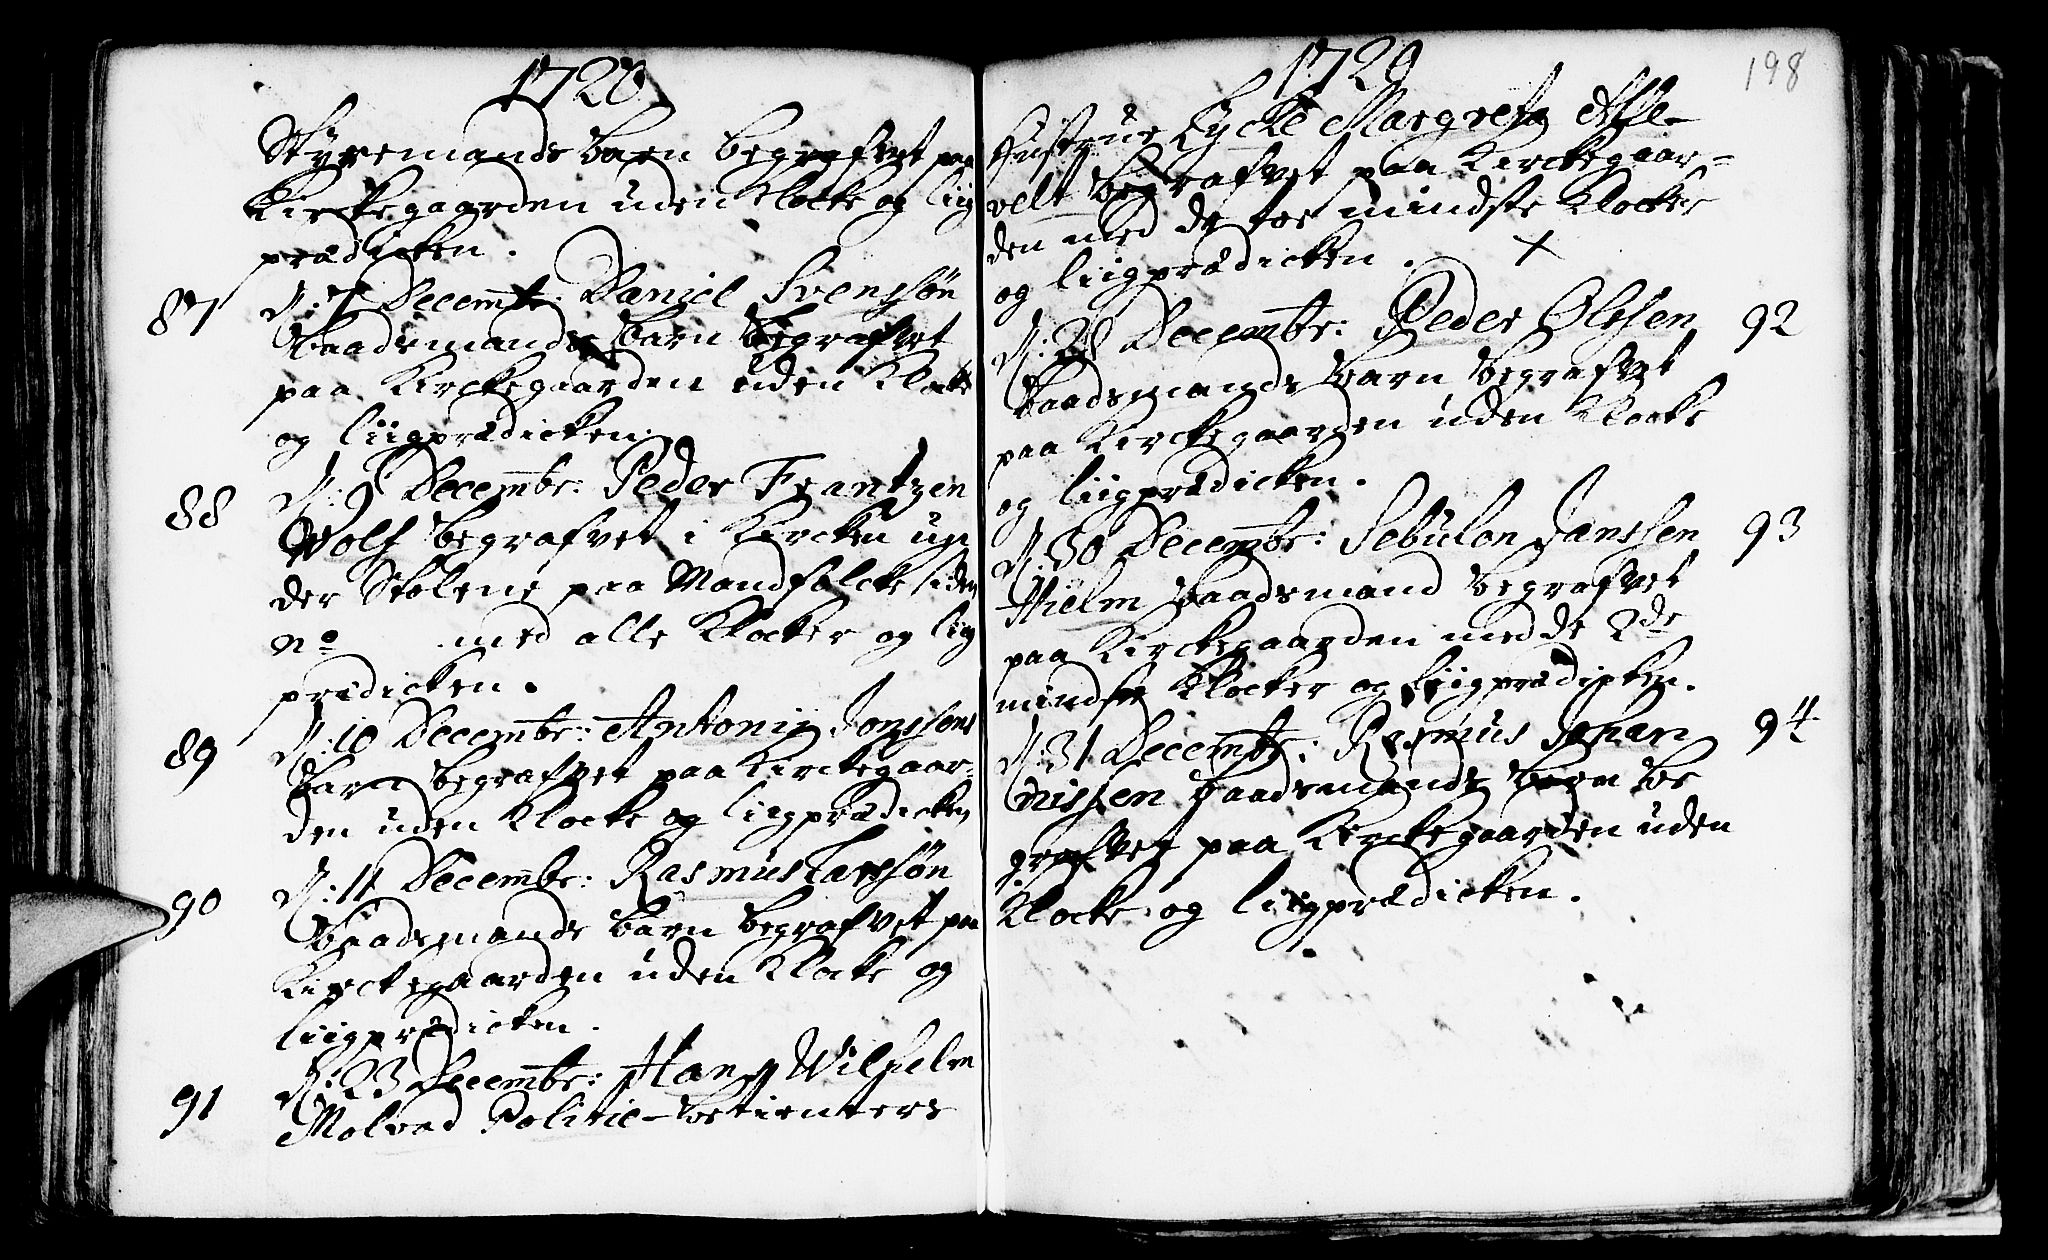 1720
Styremands barn begrafvet paa
Kirckegaarden uden Klocke og liig
prædicken.
87 D: 7 Decembr: Daniel Svenssøn
baadsmands barn begrafvet
paa Kirckegaarden uden Klocke
og liigprædicken.
88 D: 9 Decembr: Peder Frantzen
Wolf begrafvet i Kircken un
der Stolene paa Mandfolcke siden
No med alle Klocker og liig
prædicken.
89 D: 10 Decembr: Antoni Jonssøns
barn begrafvet paa Kirckegaar-
den uden Klocke og liigprædicken
90 D: 11 Decembr: Rasmus Larssøn
baadsmands barn begrafvet paa
Kirckegaarden uden Klocke og
liigprædicken.
91 D: 23 Decembr: Hans Wilhelm
Molvad Politie-betienters
1720
198
Hustrue Lycke Margreta
begrafvet paa Kirckegaar-
den med de toe mindste Klocker
og liigprædicken. +
D: 28 Decembr: Peder Olessen 92
baadsmands barn begrafvet
paa Kirckegaarden uden Klocke
og liigprædicken.
D: 30 Decembr: Sebulon Janssen 93
Hielm baadsmand begrafvet
paa Kirckegaarden med de 2de
mindste Klocker og liigprædicken.
D: 31 Decembr: Rasmus Johan 94
nissen baadsmands barn be
grafvet paa Kirckegaarden uden
Klocke og liigprædicken.